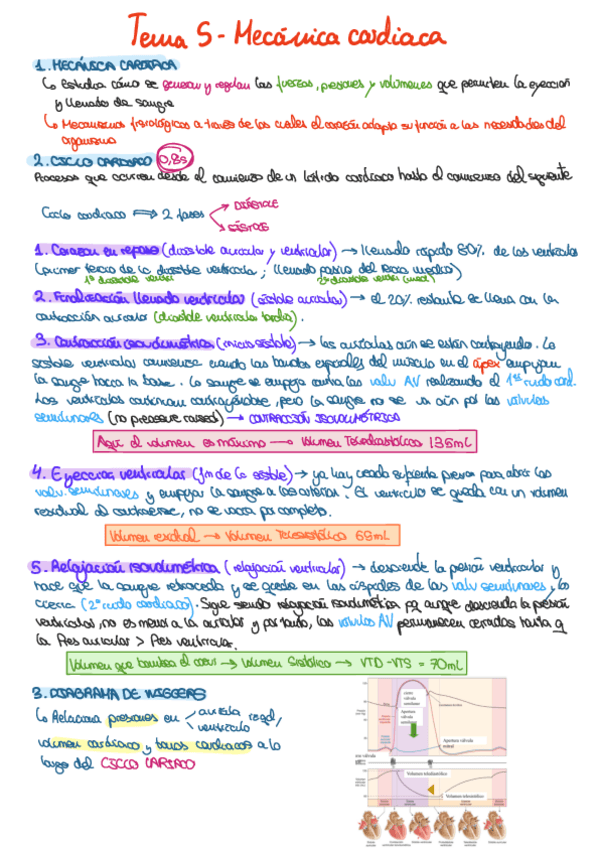 Tema 5 - Mecánica cardiaca
1. MECÁNICA CARDIACA
↳ Estudia cómo se generan y regulan las fuerzas, presiones y volúmenes que permiten la eyección
y llenado de sangre
↳ Mecanismos fisiológicos a través de los cuales el corazón adapta su función a las necesidades del
organismo
2. CICLO CARDIACO 0,8s
Procesos que ocurren desde el comienzo de un latido cardiaco hasta el comienzo del siguiente
Ciclo cardiaco ⇒ 2 fases
→ DIÁSTOLE
→ SÍSTOLE
1. Corazón en reposo (diástole auricular y ventricular) → llenado rápido 80% de los ventrículos
(primer tercio de la diástole ventricular; llenado pasivo del tercio medio)
1ª diástole ventri
diástole ventri (med)
2. Finalización llenado ventricular (sístole auricular) → el 20% restante se llena con la
contracción auricular (diástole ventricular tardía).
3. Contracción isovolumétrica (inicio sístole) → las aurículas aún se están contrayendo. La
sístole ventricular comienza cuando las bandas espirales del músculo en el ápex empujan
la sangre hacia la base. La sangre se empuja contra las valv AV realizando el 1er ruido card.
Los ventrículos continúan contrayéndose, pero la sangre no se va aún por las válvulas
semilunares (no pressure caused) → CONTRACCIÓN ISOVOLUMÉTRICA
Aquí el volumen es máximo → Volumen Telediastólico 135mL
4. Eyección ventricular (fin de la sístole) → ya hay creado suficiente presión para abrir las
valv. semilunares y empujar la sangre a las arterias. El ventrículo se queda con un volumen
residual al contraerse, no se vacía por completo.
Volumen residual → Volumen Telesistólico 65mL
5. Relajación isovolumétrica (relajación ventricular) → desciende la presión ventricular y
hace que la sangre retroceda y se quede en las cúspides de las valv semilunares, las
cierra (2º ruido cardiaco). Sigue siendo relajación isovolumétrica pq aunque descienda la presión
ventricular, no es menor a la auricular y por tanto, las válvulas AV permanecen cerradas hasta q
la Pres auricular > Pres ventricular.
Volumen que bombea el coraz → Volumen Sistólico → VTD - VTS = 70mL
3. DIAGRAMA DE WIGGERS
↳ Relaciona presiones en
aurícula
ventrículo
izqd,
volumen cardiaco y tonos cardiacos a lo
largo del CICLO CARDIACO
cierre
válvula
semilunar
Apertura
válvula
Apertura válvula
mitral
Volumen telediastólico
Volumen telesistólico